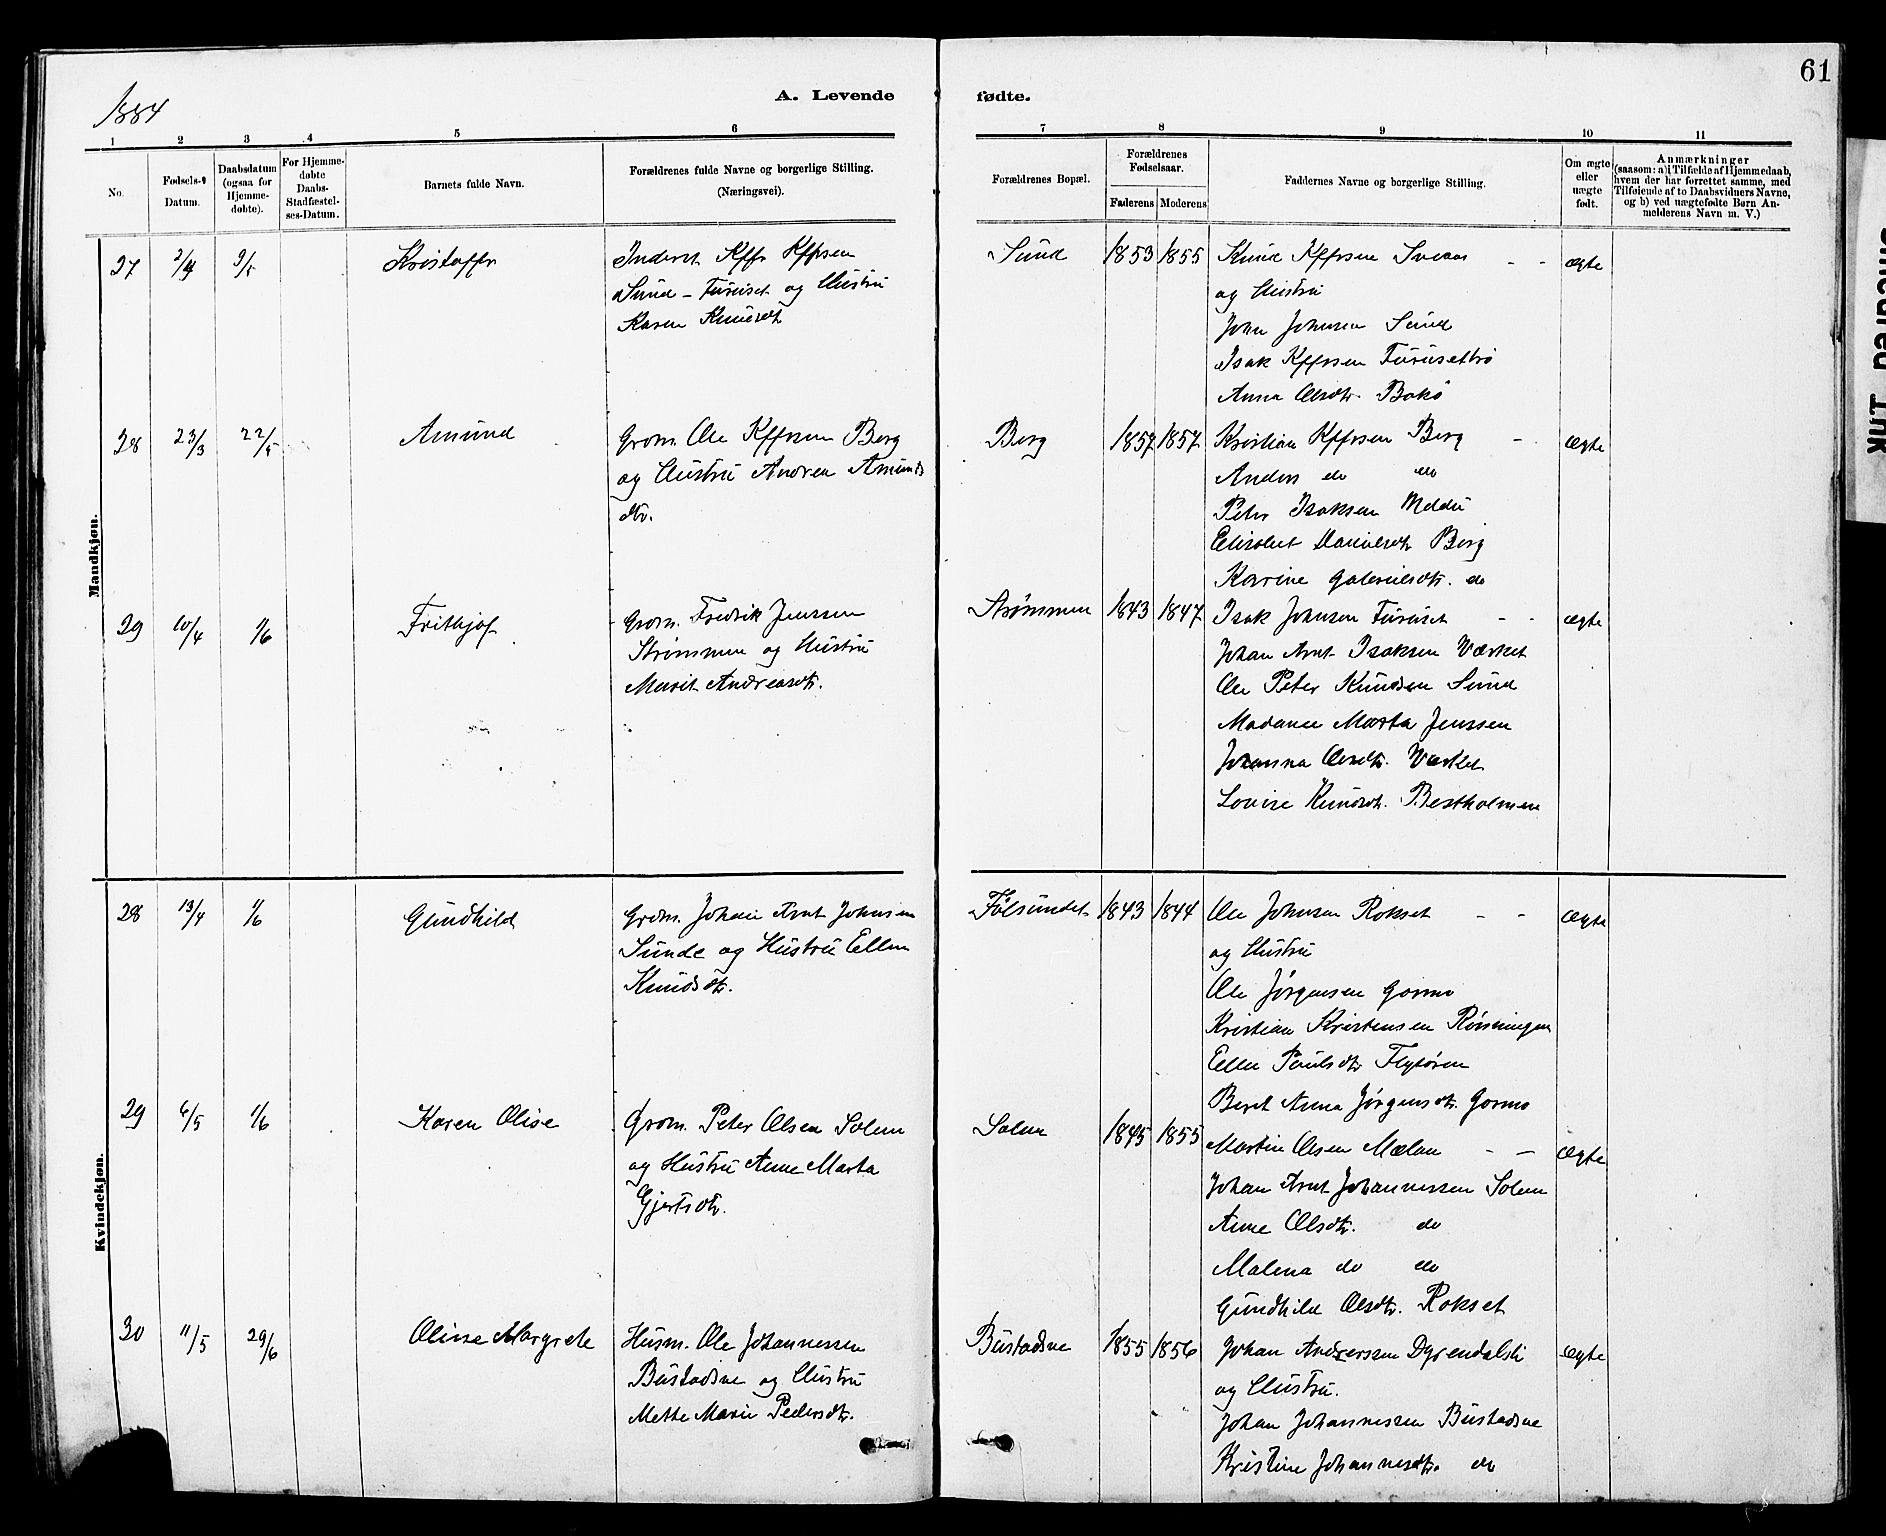 1884
A. Levende fødte.
61
1 2 3 4 5 6 7 8 9 10 11
No.
Fødsels-
Datum.
Daabsdatum
(ogsaa for
Hjemme-
døbte).
For Hjemme-
døbte
Daabs-
Stadfæstel-
ses-Datum.
Barnets fulde Navn.
Forældrenes fulde Navne og borgerlige Stilling.
(Næringsvei).
Forældrenes Bopæl.
Forældrenes
Fødselsaar.
Faderens Moderens
Faddernes Navne og borgerlige Stilling.
Om ægte
eller
uægte
født.
Anmærkninger
(saasom: a) i Tilfælde af Hjemmedaab,
hvem der har forrettet samme, med
Tilføiende af to Daabsvidners Navne,
og b) ved uægtefødte Børn An-
melderens Navn m. V.)
Mandkjøn.
27 2/4 9/5 Kristoffr
Inderst Kffr Kffrsen
Sund - Furuset og Hustru
Karen Knudsdt
Sund 1853 1855
Knud Kffrsen Sveaas - -
og Hustru
John Johnsen Sund
Isak Kffrsen Furusettrø
Anna Olsdtr. Bakø
ægte
28 23/3 22/5 Amund
Grdm. Ole Kffrsen Berg
og Hustru Andrea Amunds
dtr.
Berg 1857 1857
Kristian Kffrsen Berg -
Anders do do
Peter Isaksen Meldu
Elisabet Danielsdtr Berg
Karine Gabrielsdtr. do
ægte
29 10/4 1/6 Frithjof
Grdm. Fredrik Jenssen
Strømmen og Hustru
Marit Andreasdtr.
Strømmen 1843 1847
Isak Johnsen Furuset - -
Johan Arnt Isaksen Værket
Ole Peter Knudsen Sund
Madame Marta Jenssen
Johanna Olsdtr. Værket
Lovise Knudsdt. Bestholmen
ægte
Kvindekjøn.
28 13/4 1/6 Gundhild
Grdm. Johan Arnt Johnsen
Sunde og Hustru Ellen
Knudsdtr.
Følsundet 1843 1844
Ole Johnsen Rokset - -
og Hustru
Ole Jørgensen Gormo
Kristian Kristensen Rønningen
Ellen Paulsdtr Flytøren
Beret Anna Jørgensdt. Gormo
ægte
29 6/5 1/6 Karen Olise
Grdm. Peter Olsen Solem
og Hustru Anne Marta
Gjertsdtr.
Solem 1845 1855
Martin Olsen Mælan - -
Johan Arnt Johannessen Solem
Anne Olsdtr. do
Malena do do
Gundhild Olsdtr. Rokset
ægte
30 11/5 29/6 Oline Margrete
Husm. Ole Johannessen
Bustadsve og Hustru
Mette Marie Pedersdtr.
Bustadsve 1855 1856
Johan Anderssen Dyrendalsli
og Hustru.
Johan Johannessen Bustadsve
Kristine Johannesdtr. do
ægte